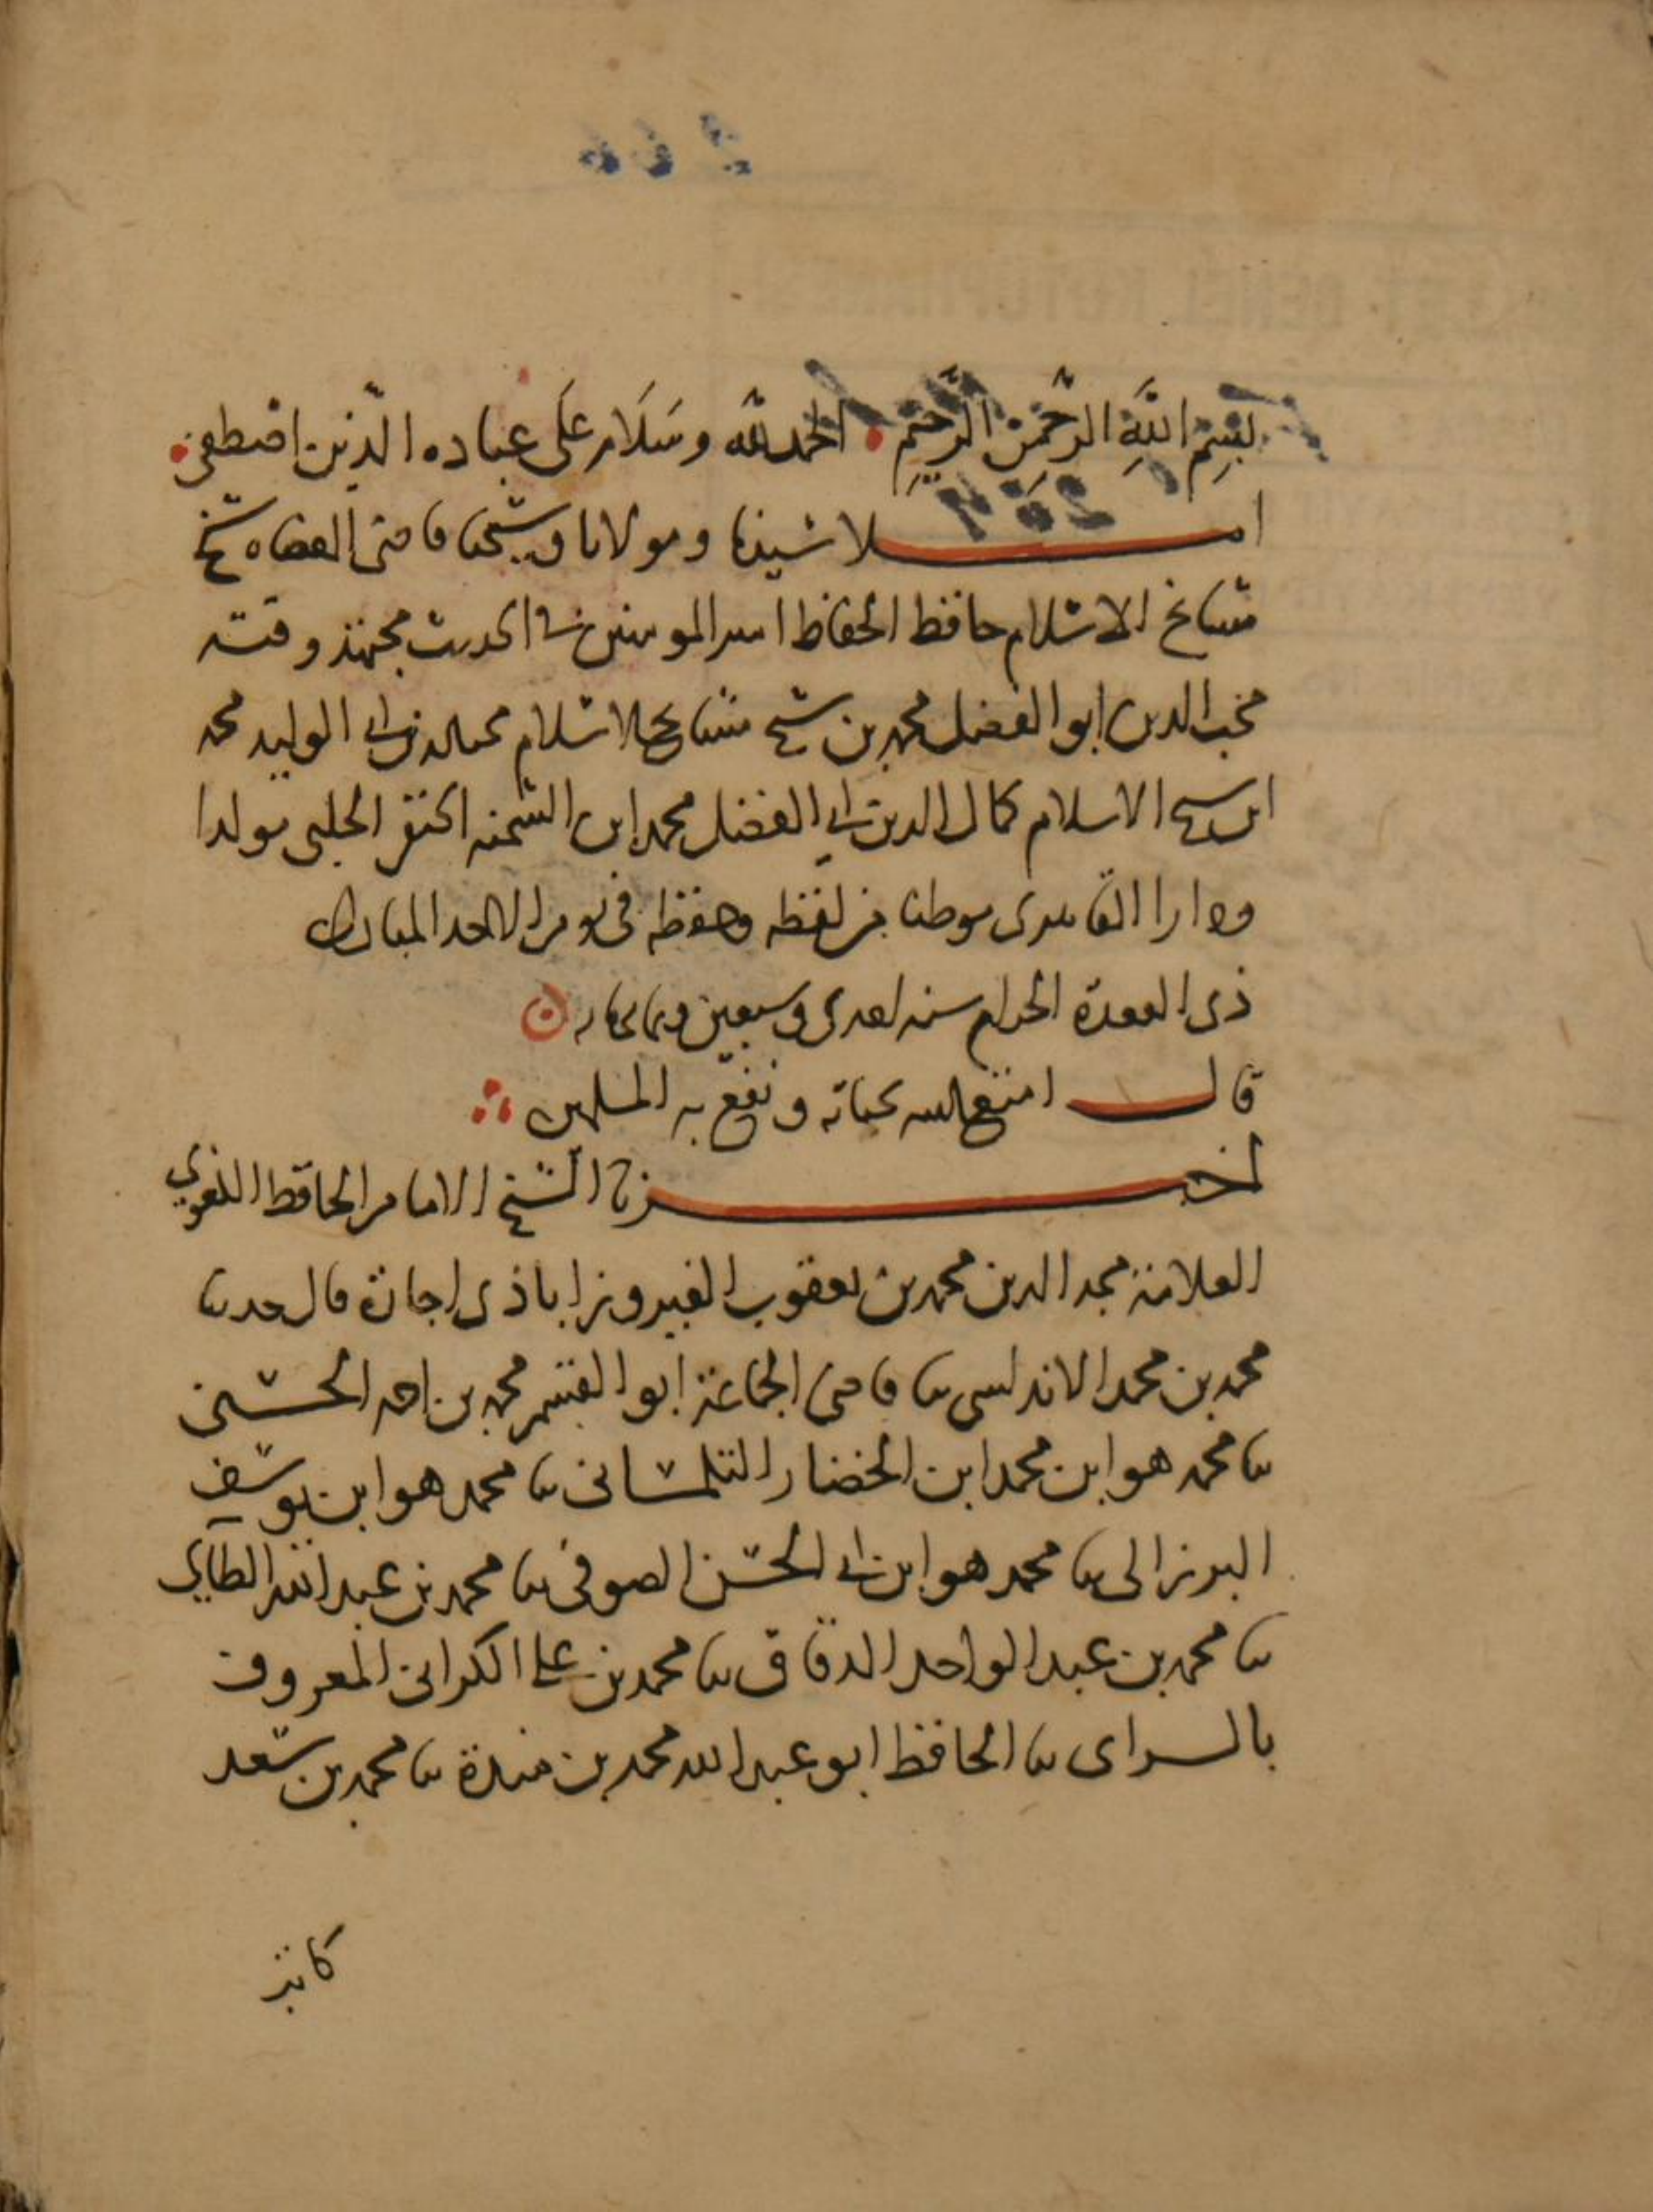 بِسْمِ اللَّهِ الرَّحْمَنِ الرَّحِيمِ الحمد لله وسَلَام عَلَى عباده الّذين اصطفى
املا سيدنا ومولانا وشيخنا قاضى القضاه شيخ
مشايخ الاسلام حافظ الحفاظ امير المومنين في الحديث مجتهد وقته
محب الدين ابو الفضل محمد بن شيخ مشايخ الاسلام محب الدين ابي الوليد محمد
ابن شيخ الاسلام كمال الدين ابي الفضل محمد ابن الشحنه الحنفي الحلبي مولدا
ودارا القاهرى موطنا من لفظه وحفظه فى يوم الاحد المبارك
ذى القعدة الحرام سنه احدى وسبعين وثمانمايه
قال امتع الله بحياته ونفع به المسلمين
اخبرنا الشيخ الامام الحافظ اللغوي
العلامة مجد الدين محمد بن يعقوب الفيروزاباذى اجازة قال حدثنا
محمد بن محمد الاندلسى ثنا قاضى الجماعة ابو القسم محمد بن احمد الحسنى
ثنا محمد هو ابن محمد ابن الخضار التلمسانى ثنا محمد هو ابن يوسف
البرزالى ثنا محمد هو ابن ابي الحسن الصوفى ثنا محمد بن عبد الله الطايي
ثنا محمد بن عبد الواحد الدقاق ثنا محمد بن على الكرانى المعروف
بالسراى ثنا الحافظ ابو عبد الله محمد بن مندة ثنا محمد بن سعد
كاتب